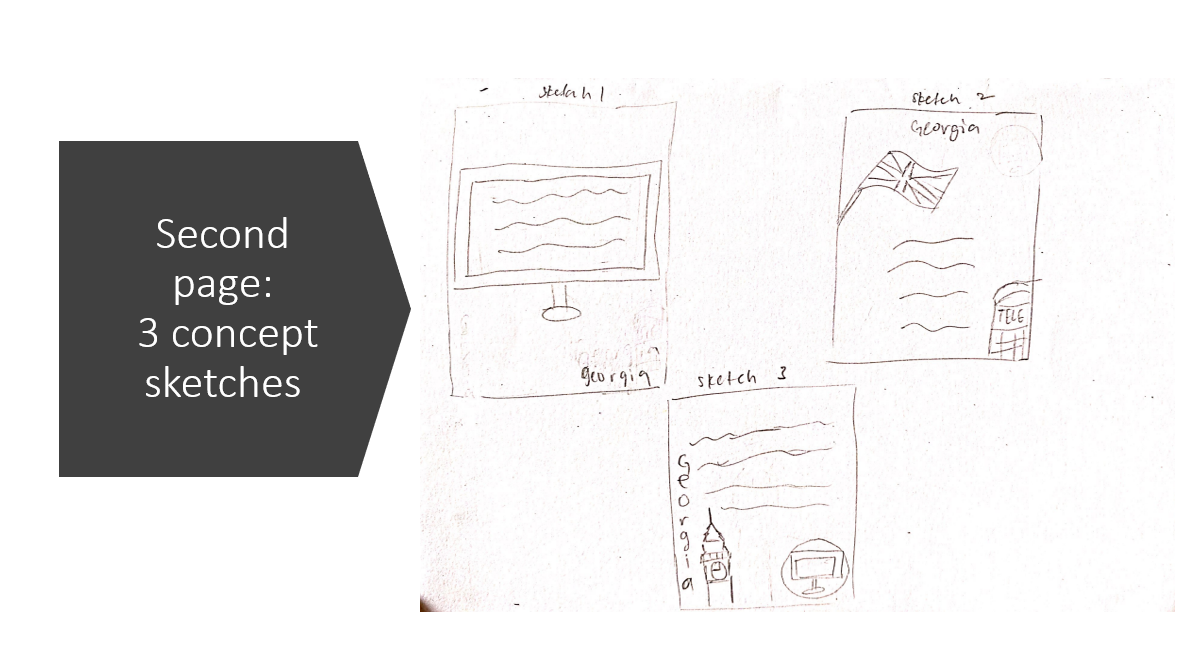 Second
page:
3 concept
sketches
sketch 1
georgia
georgia
sketch 2
Georgia
TELE
sketch 3
Georgia